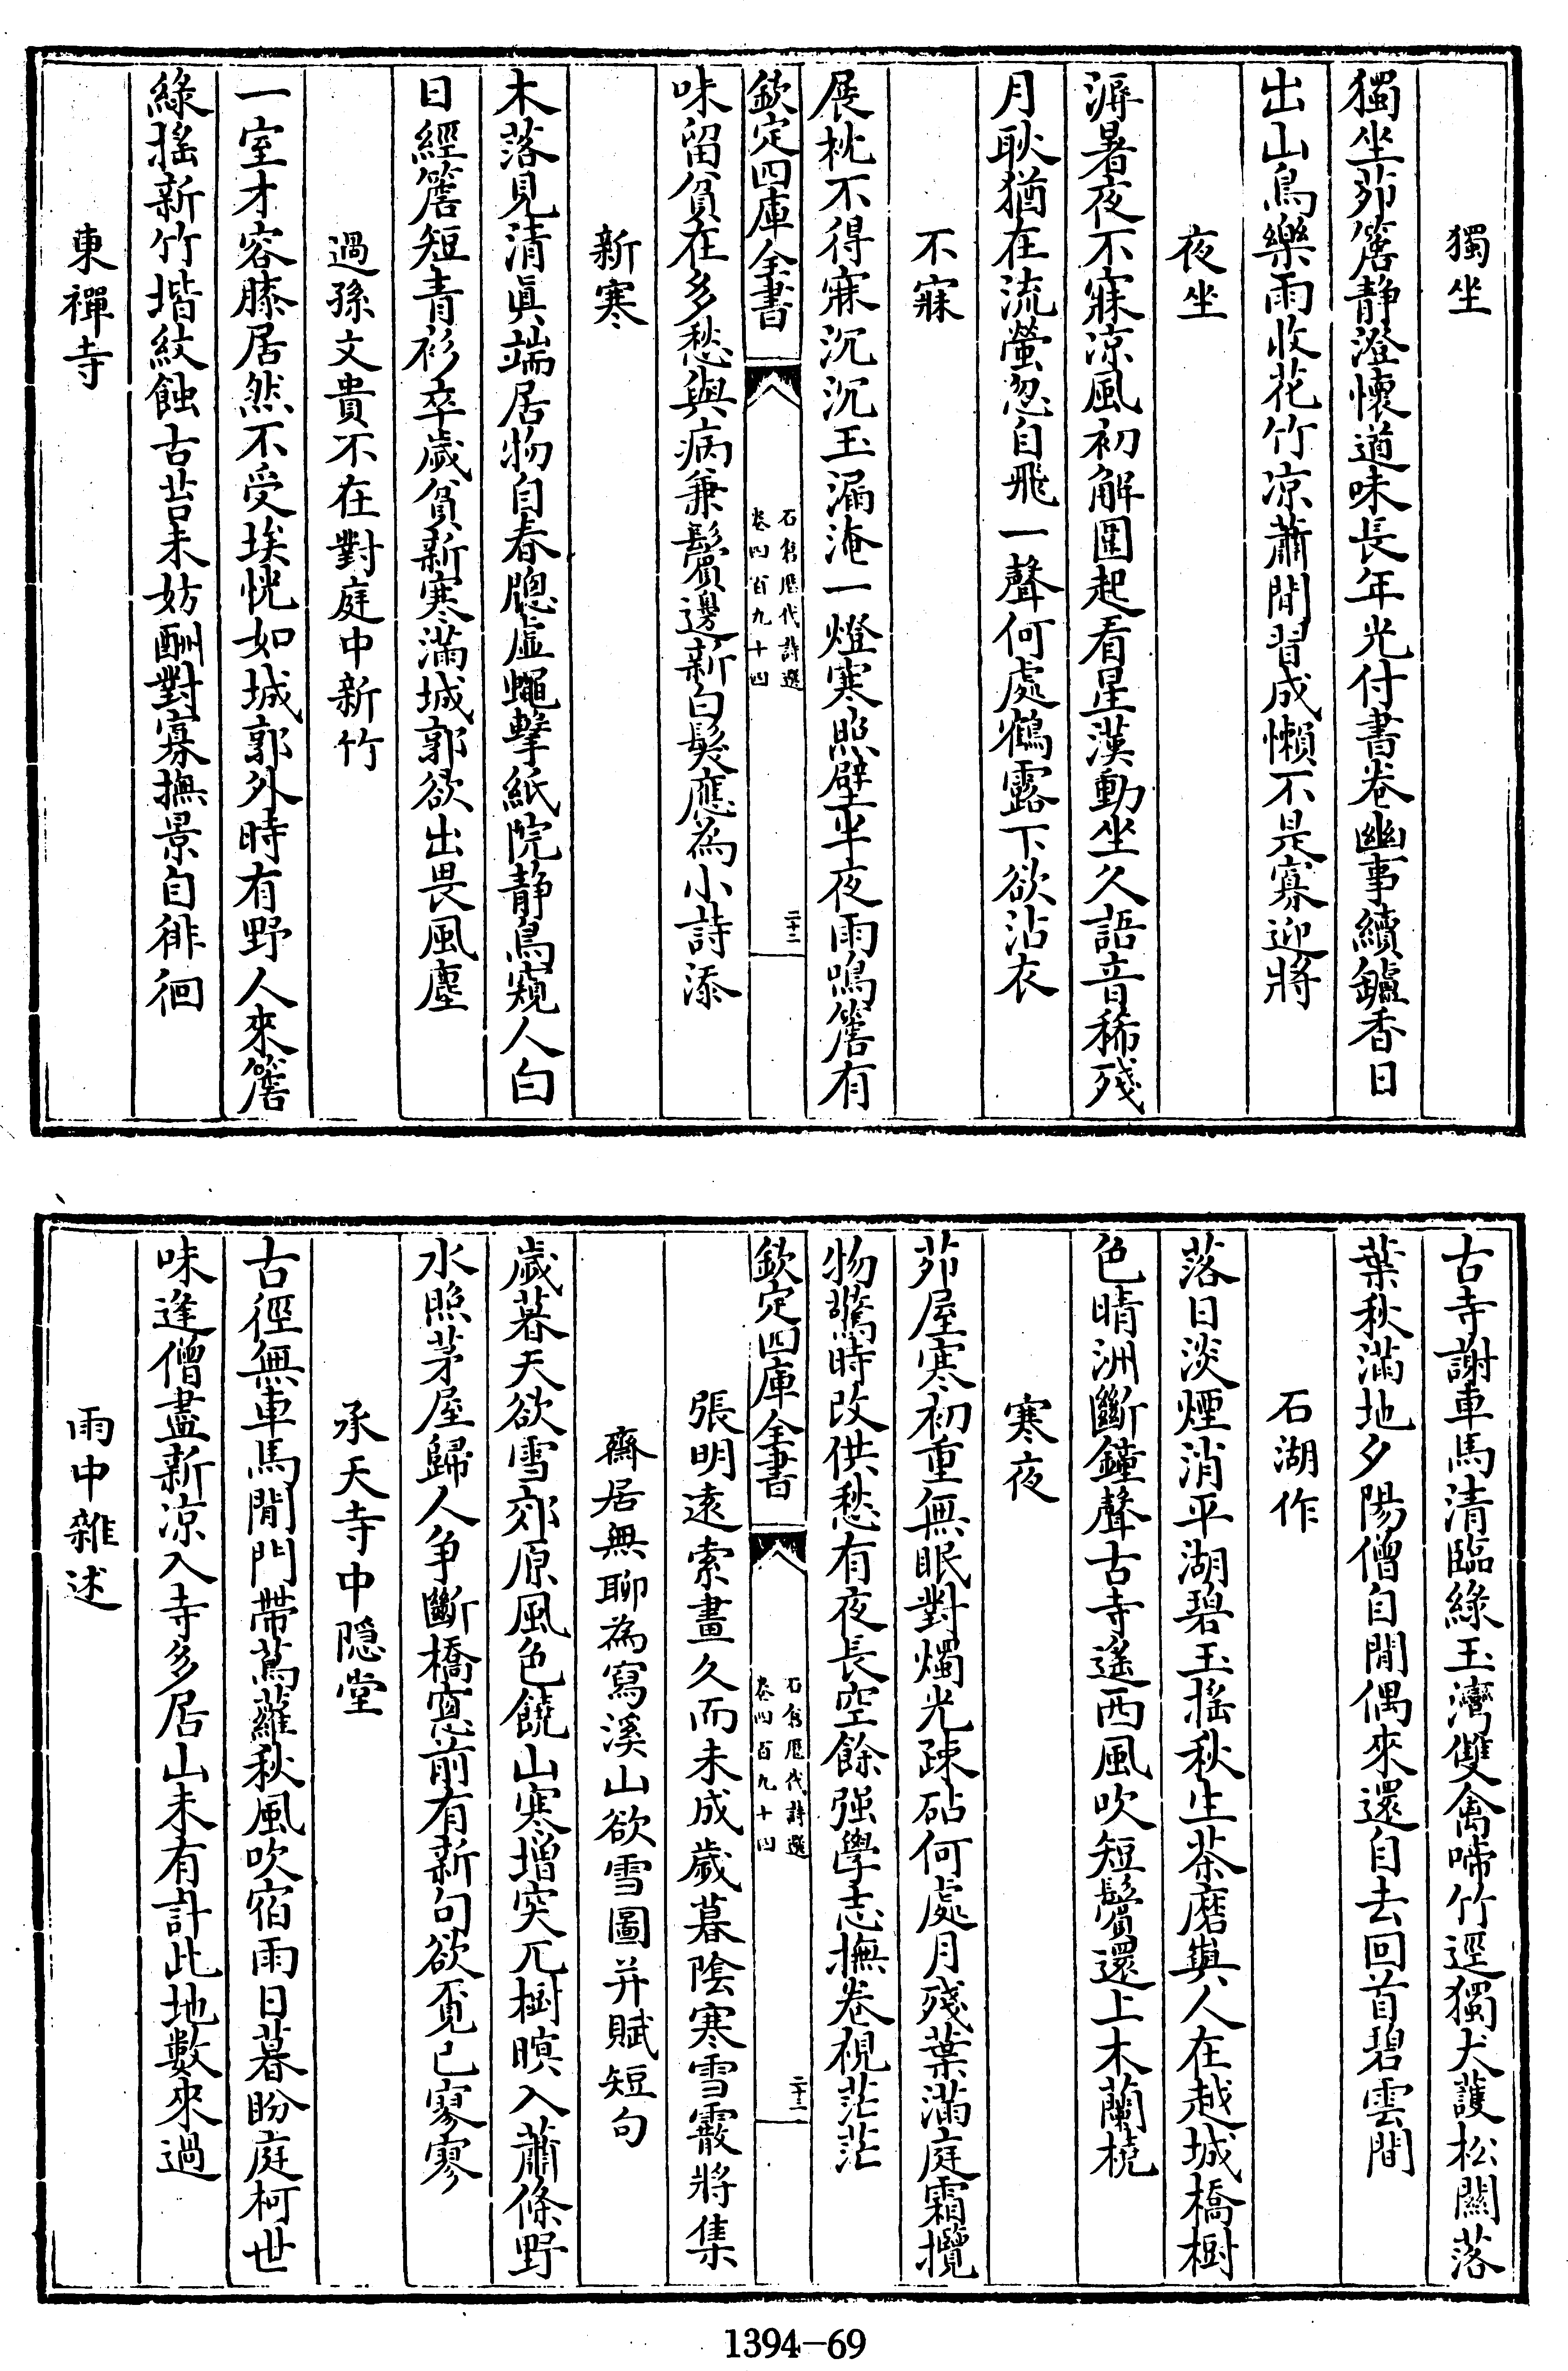 獨坐
獨坐茆簷静澄懷道味長年光付書卷幽事續鑪香日
出山鳥樂雨收花竹凉蕭閒習成懶不是寡迎將
夜坐
溽暑夜不寐凉風初解圍起看星漢動坐久語音稀殘
月耿猶在流螢忽自飛一聲何處鶴露下欲沾衣
不寐
展枕不得寐沉沉玉漏淹一燈寒照壁半夜雨鳴簷有
欽定四庫全書
石倉歷代詩選
卷四百九十四
二十二
味留貧在多愁與病兼鬢邊新白髮應為小詩添
新寒
木落見清真端居物自春牕虛蠅擊紙院静鳥窺人白
日經簷短青衫卒歲貧新寒滿城郭欲出畏風塵
過孫文貴不在對庭中新竹
一室才容膝居然不受埃恍如城郭外時有野人來簷
綠搖新竹堦紋蝕古苔未妨酬對寡撫景自徘徊
東禪寺
古寺謝車馬清臨綠玉灣雙禽啼竹逕獨犬護松關落
葉秋滿地夕陽僧自閒偶來還自去回首碧雲間
石湖作
落日淡煙消平湖碧玉搖秋生茶磨嶼人在越城橋樹
色晴洲斷鐘聲古寺遙西風吹短鬢還上木蘭橈
寒夜
茆屋寒初重無眠對燭光疎砧何處月殘葉滿庭霜攬
物驚時改供愁有夜長空餘强學志撫卷視茫茫
欽定四庫全書
石倉歷代詩選
卷四百九十四
二十三
張明遠索畫久而未成歲暮陰寒雪霰將集
齋居無聊為寫溪山欲雪圖并賦短句
歲暮天欲雪郊原風色饒山寒增突兀樹暝入蕭條野
水照茅屋歸人争斷橋窓前有新句欲覓已寥寥
承天寺中隱堂
古徑無車馬閒門帶蔦蘿秋風吹宿雨日暮盼庭柯世
味逢僧盡新凉入寺多居山未有計此地數來過
雨中雜述
1394-69